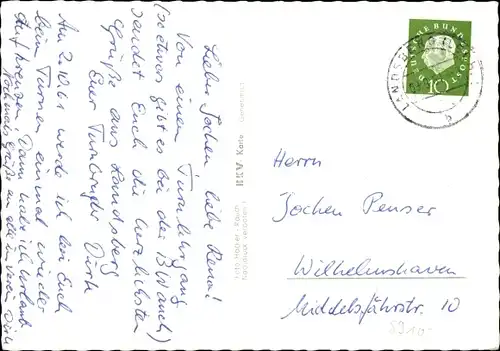 Lieber Jochen, liebe Rena!
Von einem Turnlehrgang
(so etwas gibt es bei der BW auch)
sendet Euch die herzlichsten
Grüße aus Landsberg
Euer Turnbruder Dirk
Am 2.10.61 werde ich bei Euch
beim Turnen einmal wieder
aufkreuzen. Dann habe ich Urlaub
Nochmals Grüße an alle im Verein Dirk
Foto Hubert Rauch
AKH Karte
DEUTSCHE BUNDESPOST
10
LANDSBERG
b
Herrn
Jochen Penser
Wilhelmshaven
Middelsfährstr. 10